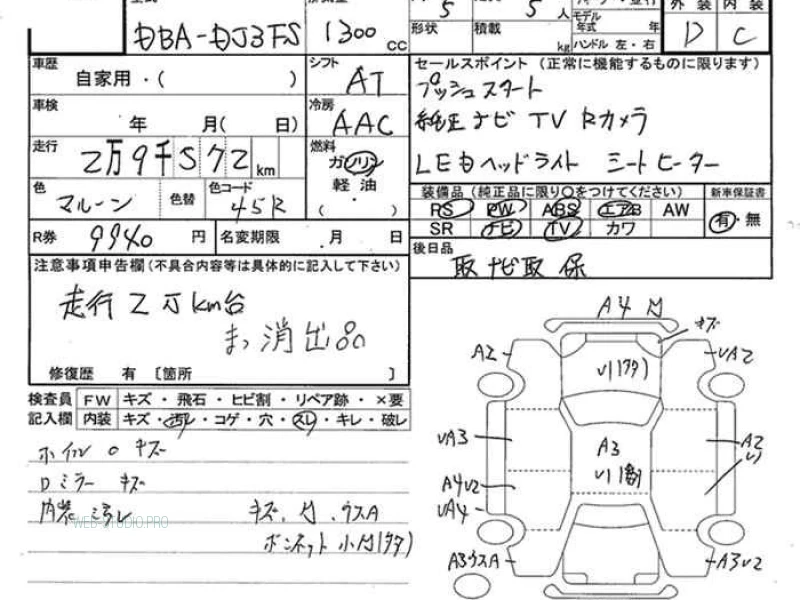 DBA-DJ3FS 1300 cc
5 5 人
形状 積載 kg
モデル年式 年
ハンドル 左・右
外装 内装
D C
車歴 自家用・( )
シフト AT
セールスポイント (正常に機能するものに限ります)
プッシュスタート
車検 年 月( 日)
冷房 AAC
純正ナビ TV Rカメラ
走行 2万9千572 km
燃料 ガソリン 軽油 ( ・ )
LEDヘッドライト シートヒーター
色 マルーン 色替 色コード 45R
装備品 (純正品に限り○をつけてください) 新車保証書
PS PW ABS エアB AW 有・無
SR ナビ TV カワ
R券 9940 円 名変期限 月 日
後日品 取 ナビ取 保
注意事項申告欄(不具合内容等は具体的に記入して下さい)
走行2万km台
消出品
修復歴 有 〔箇所 〕
検査員記入欄 FW キズ・飛石・ヒビ割・リペア跡・×要
内装 キズ・汚レ・コゲ・穴・スレ・キレ・破レ
ホイル 〇 キズ
ミラー キズ
内装 汚レ
WEB-STUDIO.PRO
キズ、 ウスA
ボンネット 小
A4
キズ
A2
UA2
UA3
A3
A2
A4U2
UA4
A3ウスA
A3U2